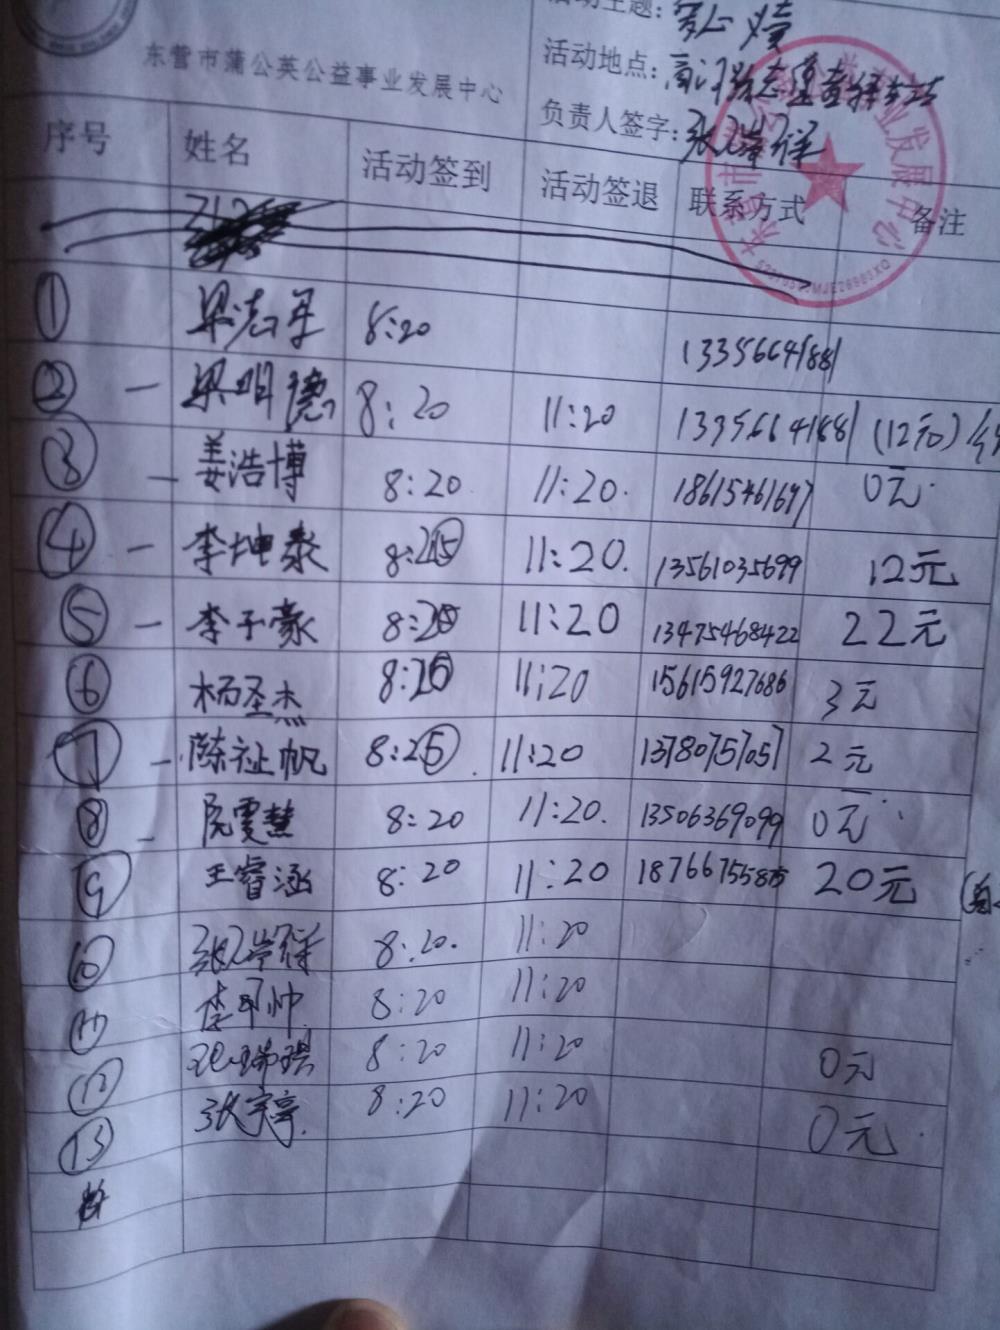 活动主题:
东营市蒲公英公益事业发展中心
活动地点:
负责人签字: 张
序号 姓名 活动签到 活动签退 联系方式 备注
① 梁志军 8:20 13356641881
② 梁明德 8:20 11:20 13356641881 (12元)
③ 姜浩博 8:20 11:20. 18615461697 0元
④ 李坤泰 8:25 11:20. 13561035699 12元
⑤ 李子豪 8:20 11:20 13475468422 22元
⑥ 杨圣杰 8:20 11:20 15615927686 3元
⑦ 陈祉帆 8:25 11:20 13780757057 2元
⑧ 阮雯慧 8:20 11:20. 13506369099 0元
⑨ 王睿涵 8:20 11:20 18766755875 20元
⑩ 张 8:20. 11:20
⑪ 李 帅 8:20 11:20
⑫ 瑞琪 8:20 11:20 0元
⑬ 张宇亭. 8:20 11:20 0元